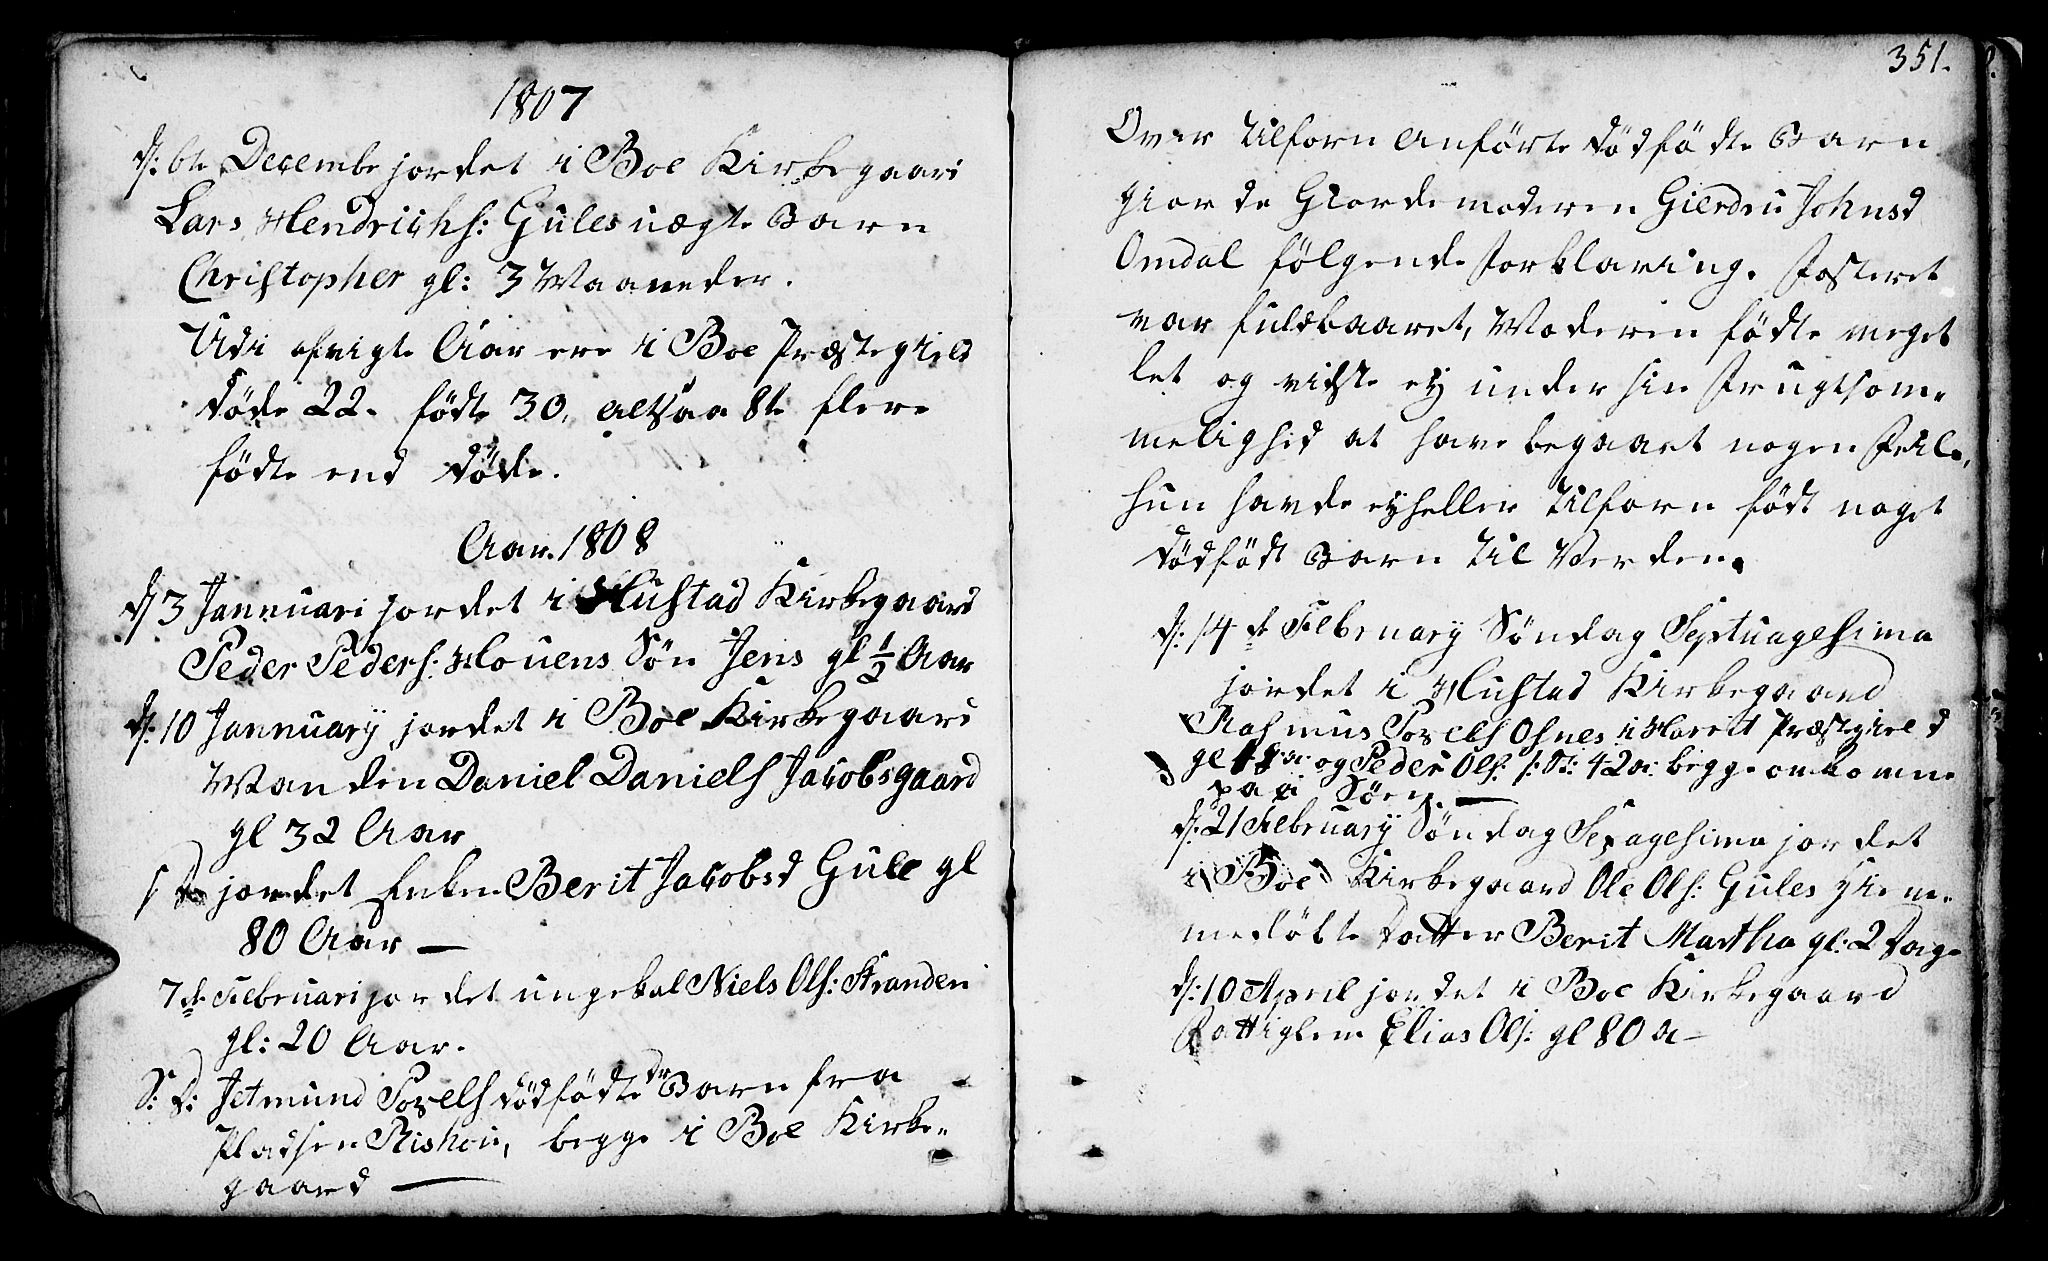 1807
d: 6te Decembr jordet i Boe Kirkegaard
Lars Hendrichs: Gules uægte Barn
Christopher gl: 3 Maaneder.
Udi afvigte Aar ere i Boe Præstegield
døde 22. födte 30, altsaa 8te flere
födte end døde.
Aar. 1808
d 3 Jannuari jordet i Hustad Kirkegaard
Peder Peders: Houens Søn Jens gl 1/2 Aar
d: 10 Jannuary jordet i Boe Kirkegaard
Manden Daniel Daniels Jacobsgaard
gl 32 Aar
jordet Enken Berit Jacobsd Gule gl
80 Aar —
7de Februari jordet ungekal Niels Ols: Stranden
gl: 20 Aar.
S: D: Jetmund Povels dödfödte Barn fra
Pladsen Rishoin, begge i Boe Kirke-
gaard —
351.
Over tilforn anförte dödfödte Barn
giorde Giordemoderen Gierdru Johnsd
Omdal fölgende Forklaring. Fosteret
var fuldbaaret, Moderen födte meget
let og vidste ey under sin Frugtsom-
melighed at have begaaet nogen Feil,
hun havde eyheller tilforn födt noget
dödfödt Barn til Verden.
d: 14de February Söndag Septuagesima
jordet i Hustad Kirkegaard
Rasmus Povels Osnes i Præstegield
gl og Peder Ols: 42 a: begge omkomne
paa Söen. —
d: 21 February Söndag Sexagesima jordet
i Boe Kirkegaard Ole Ols: Gules hiem-
medöbte Datter Berit Martha gl: 2 Dage
d: 10 April jordet i Boe Kirkegaard
Fattiglem Elias Ols: gl 80 a —